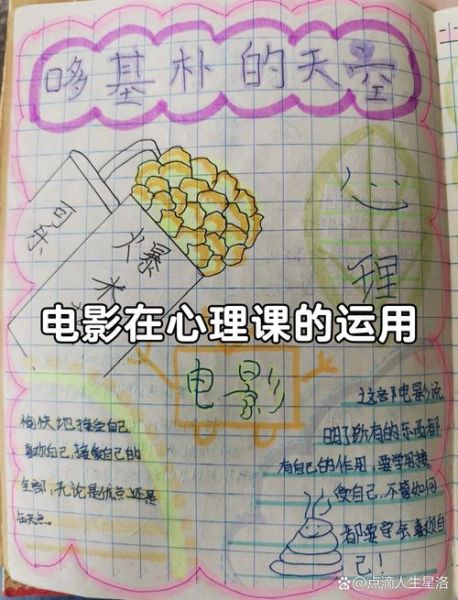 哆基朴的天空
可乐
爆米
心
理
电影在心理课的运用
电影
愉快地接受自己
喜欢自己,接受自己的
全部,无论是优点还是
缺点。
这部电影说
明了所有的东西都
有自己的作用,要学习接
受自己,不管如何
都要学会喜欢自
己!
@点滴人生星洛